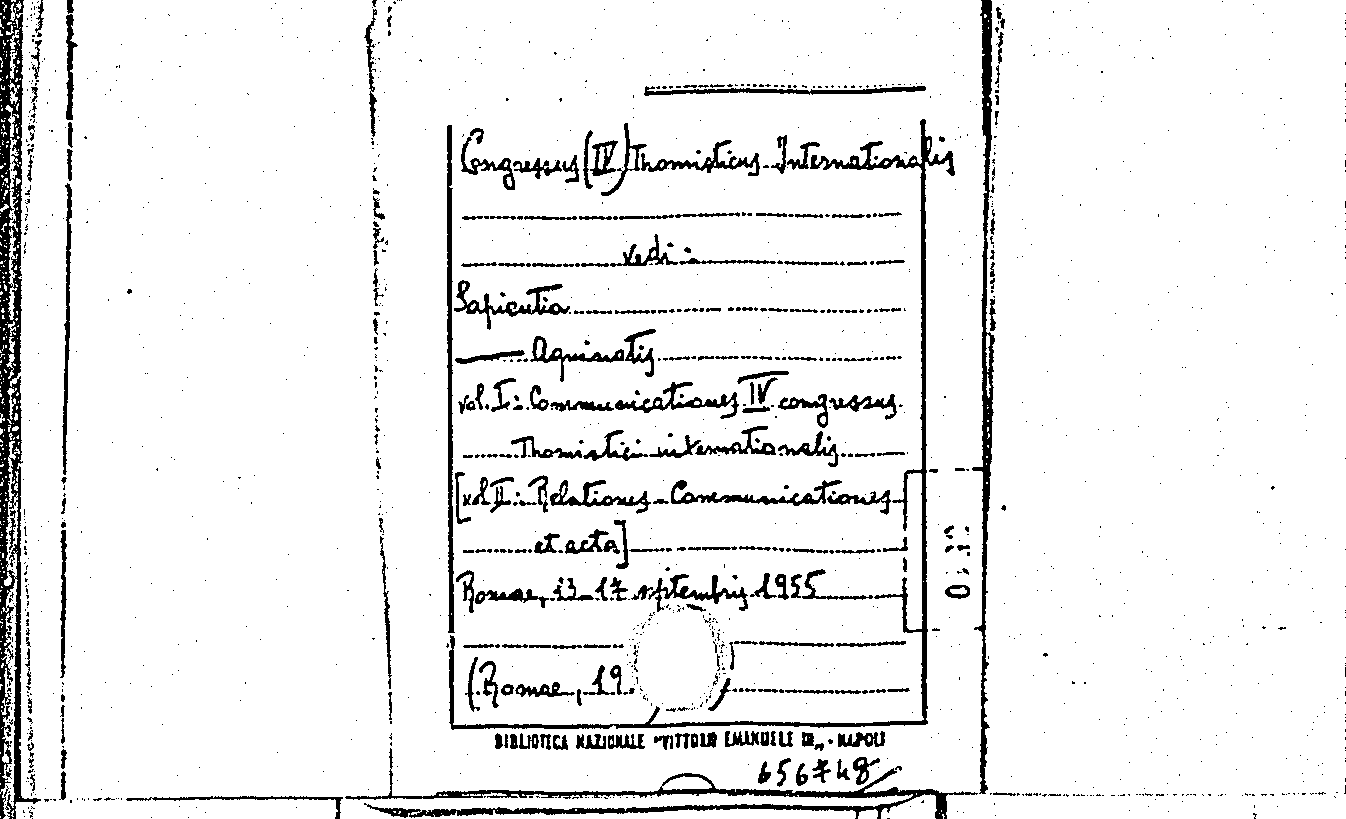 Congressus (IV) Thomisticus Internationalis
vedi:
Sapientia
—— Aquinatis
vol. I: Communicationes IV congressus
Thomistici internationalis
[vol II: Relationes - Communicationes
et acta]
Romae, 13-17 septembris 1955
(Romae, 19 )
BIBLIOTECA NAZIONALE "VITTORIO EMANUELE III„ - NAPOLI
656748